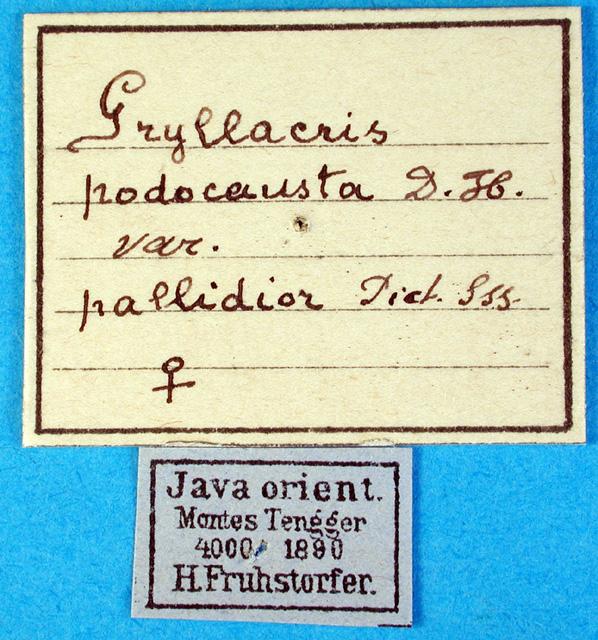 Gryllacris
podocausta D. H.
var.
pallidior Pict. Sss.
♀
Java orient.
Montes Tengger
4000' 1890
H. Fruhstorfer.